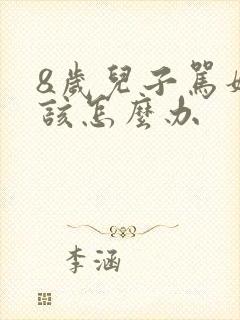 8歲兒子罵如
該怎麼办
李涵